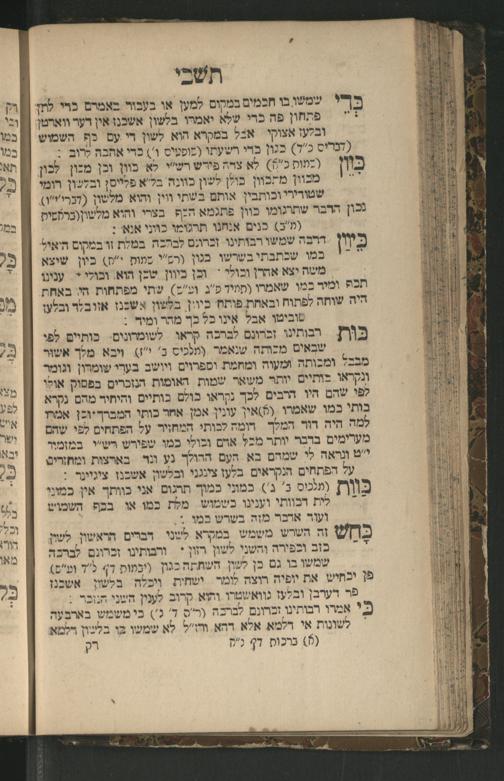 תשבי
כְּדֵי שמשו בו חכמים במקום למען או בעבור באמרם כדי ליתן
פתחון פה כדי שלא יאמרו בלשון אשכנז אין דער ווארטן
ובלעז אצוקי אבל במקרא הוא לשון די עם כף השמוש
(דברים כ״ד) כגון כדי רשעתו (שופטים ו׳) כדי ארבה לרוב :
כִּוֵּן (שמות כ״א) לא צדה פירש רש״י לא כוון וכן מכון לכון
מכוון מתכוון כולן לשון כוונה בל״א פלייסן ובלשון רומי
שטודירי וכותבין אותם בשתי ווין והוא מלשון
נכון הדבר שתרגומו כוון פתגמא הכף בצרי והוא מלשון (בראשית
מ״ב) כנים אנחנו תרגומו כווני אנא :
כֵּיוָן הרבה שמשו רבותינו זכרונם לברכה במלת זו במקום הואיל
כמו שכתבתי בשרשו כגון (רש״י שמות י״ח) כיון שיצא
משה יצא אהרן וכולי׳ וכן כיוון שכן הוא וכולי׳ ענינו
תכף ומיד כמו שאמרו שתי מפתחות הי׳ באחת
היה שוהה לפתוח ובאחת פותח כיון בלשון אשכנז אזו בלד ובלעז
סוביטו אבל אינו כל כך מהר ומיד :
כּוּת רבותינו זכרונם לברכה קראו לשומרונים כותיים לפי
שבאים מכותה שנאמר (מלכים ב׳ י״ז) ויבא מלך אשור
מבבל ומכותה ומעוה ומחמת וספרוים ויושב בערי שומרון וגומר
ונקראו כותיים יותר משאר שמות האומות הנזכרים בפסוק אולי
לפי שהם היו הרבים לכך נקראו כולם כותיים והיחיד מהם נקרא
כותי כמו שאמרו (א) אין עונין אמן אחר כותי המברך וכן אמרו
למה היה דוד המלך דומה לכותי המחזיר על הפתחים לפי שהם
מערימים בדבר יותר מכל אדם וכולי כמו שפירש רש״י במזמור
י״ט ונראה לי שמהם בא העם ההולך נע ונד בארצות ומחזרים
על הפתחים הנקראים בלעז צינגני ובלשון אשכנז ציגיינר :
כַּוָּת (מלכים ב׳ ג׳) כמוני כמוך תרגום אני כוותך אין כמוני
לית דכוותי וענינו כשמוש מלת כמו או בכף השמוש
ועוד אדבר מזה בשרש כמו :
כָּחַשׁ זה השרש משמש במקרא לשני דברים הראשון לשון
כזב וכפירה והשני לשון רזון׳ ורבותינו זכרונם לברכה
שמשו בו גם כן לשון השחתה כגון
פן יכחיש את יופיה רוצה לומר ישחית ויכלה בלשון אשכנז
פר דערבן ובלעז גוואשטרו והוא קרוב לענין השני הנזכר :
כִּי אמרו רבותינו זכרונם לברכה (ר״ה ד׳ ג׳) כי משמש בארבעה
לשונות אי דלמא אלא דהא ורז״ל לא שמשו בו בלשון דלמא
(א) ברכות דף נ״ח
רק